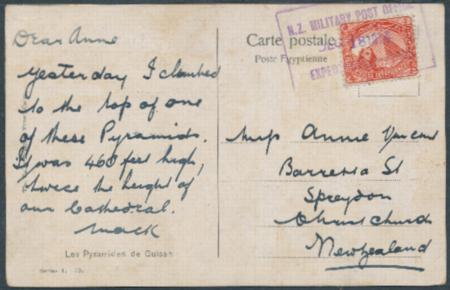 Dear Anne
Yesterday I climbed
to the top of one
of these Pyramids.
It was 460 feet high,
twice the height of
our Cathedral.
Mack
Les Pyramides de Guiseh
N.Z. MILITARY POST OFFICE
DEC 18
Carte postale
Poste Egyptienne
Miss Annie
St
Spreydon
Christchurch
New Zealand